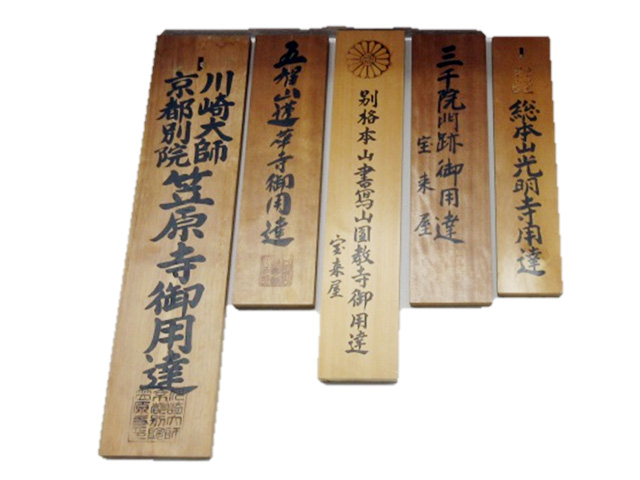 総本山光明寺用達
三千院門跡御用達
宝来屋
別格本山書寫山圓教寺御用達
宝来屋
五智山蓮華寺御用達
川崎大師
京都別院
笠原寺御用達